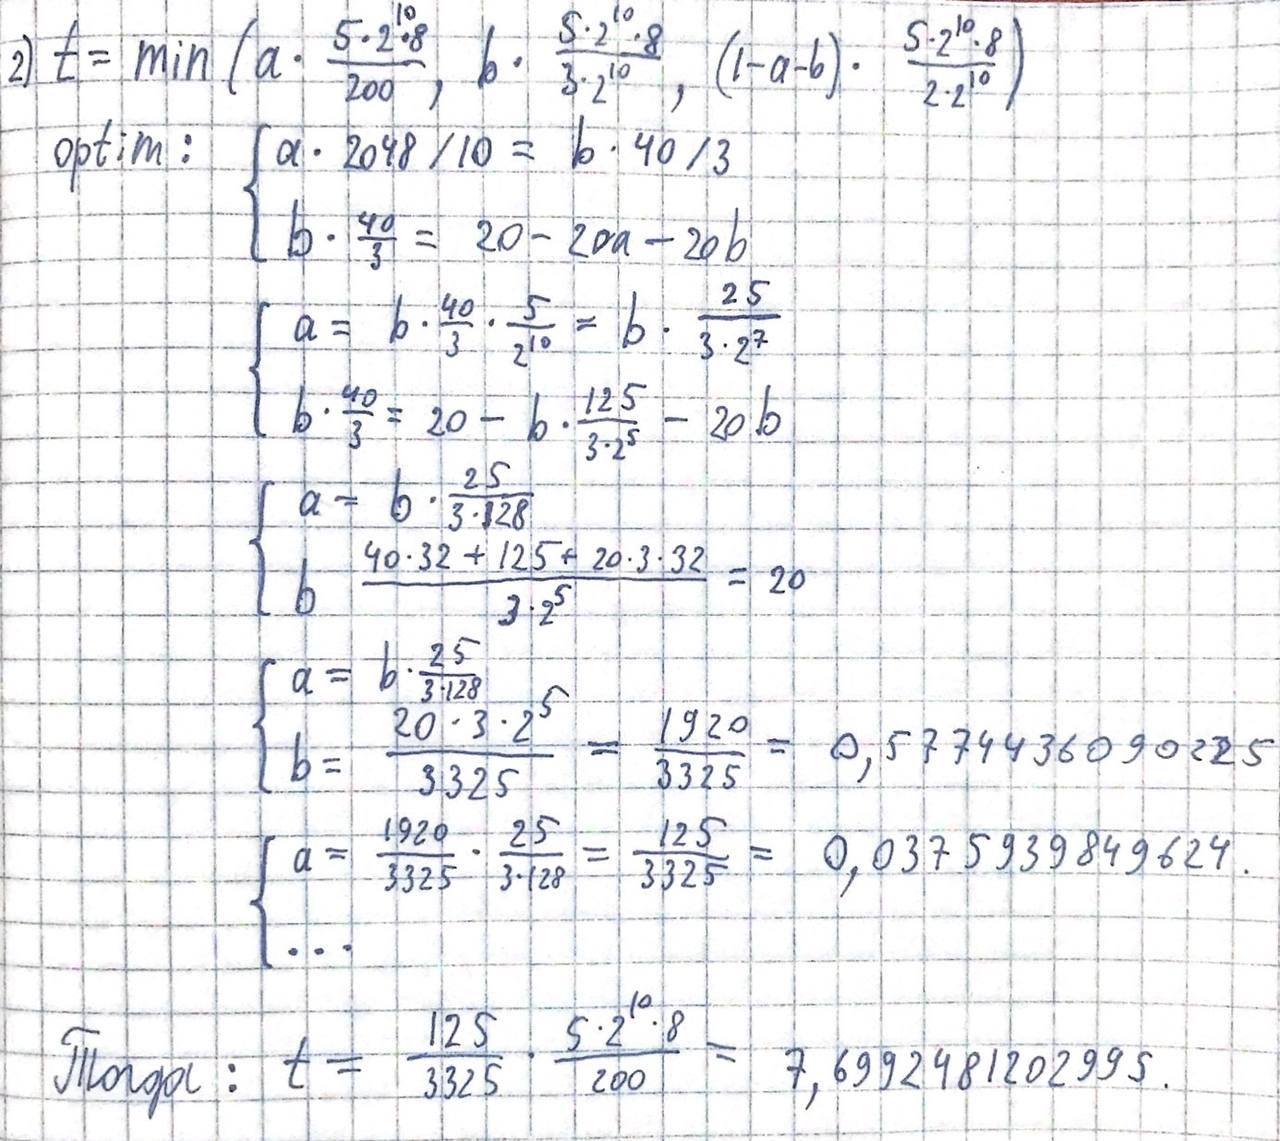 2) t = min (a · 5·2^10·8/200, b · 5·2^10·8/3·2^10, (1-a-b) · 5·2^10·8/2·2^10)
optim: { a · 2048/10 = b · 40/3
b · 40/3 = 20 - 20a - 20b
{ a = b · 40/3 · 5/2^10 = b · 25/3·2^7
b · 40/3 = 20 - b · 125/3·2^5 - 20b
{ a = b · 25/3·128
b 40·32 + 125 + 20·3·32/3·2^5 = 20
{ a = b · 25/3·128
b = 20·3·2^5/3325 = 1920/3325 = 0,5774436090225
{ a = 1920/3325 · 25/3·128 = 125/3325 = 0,0375939849624.
...
Тогда: t = 125/3325 · 5·2^10·8/200 = 7,6992481202995.